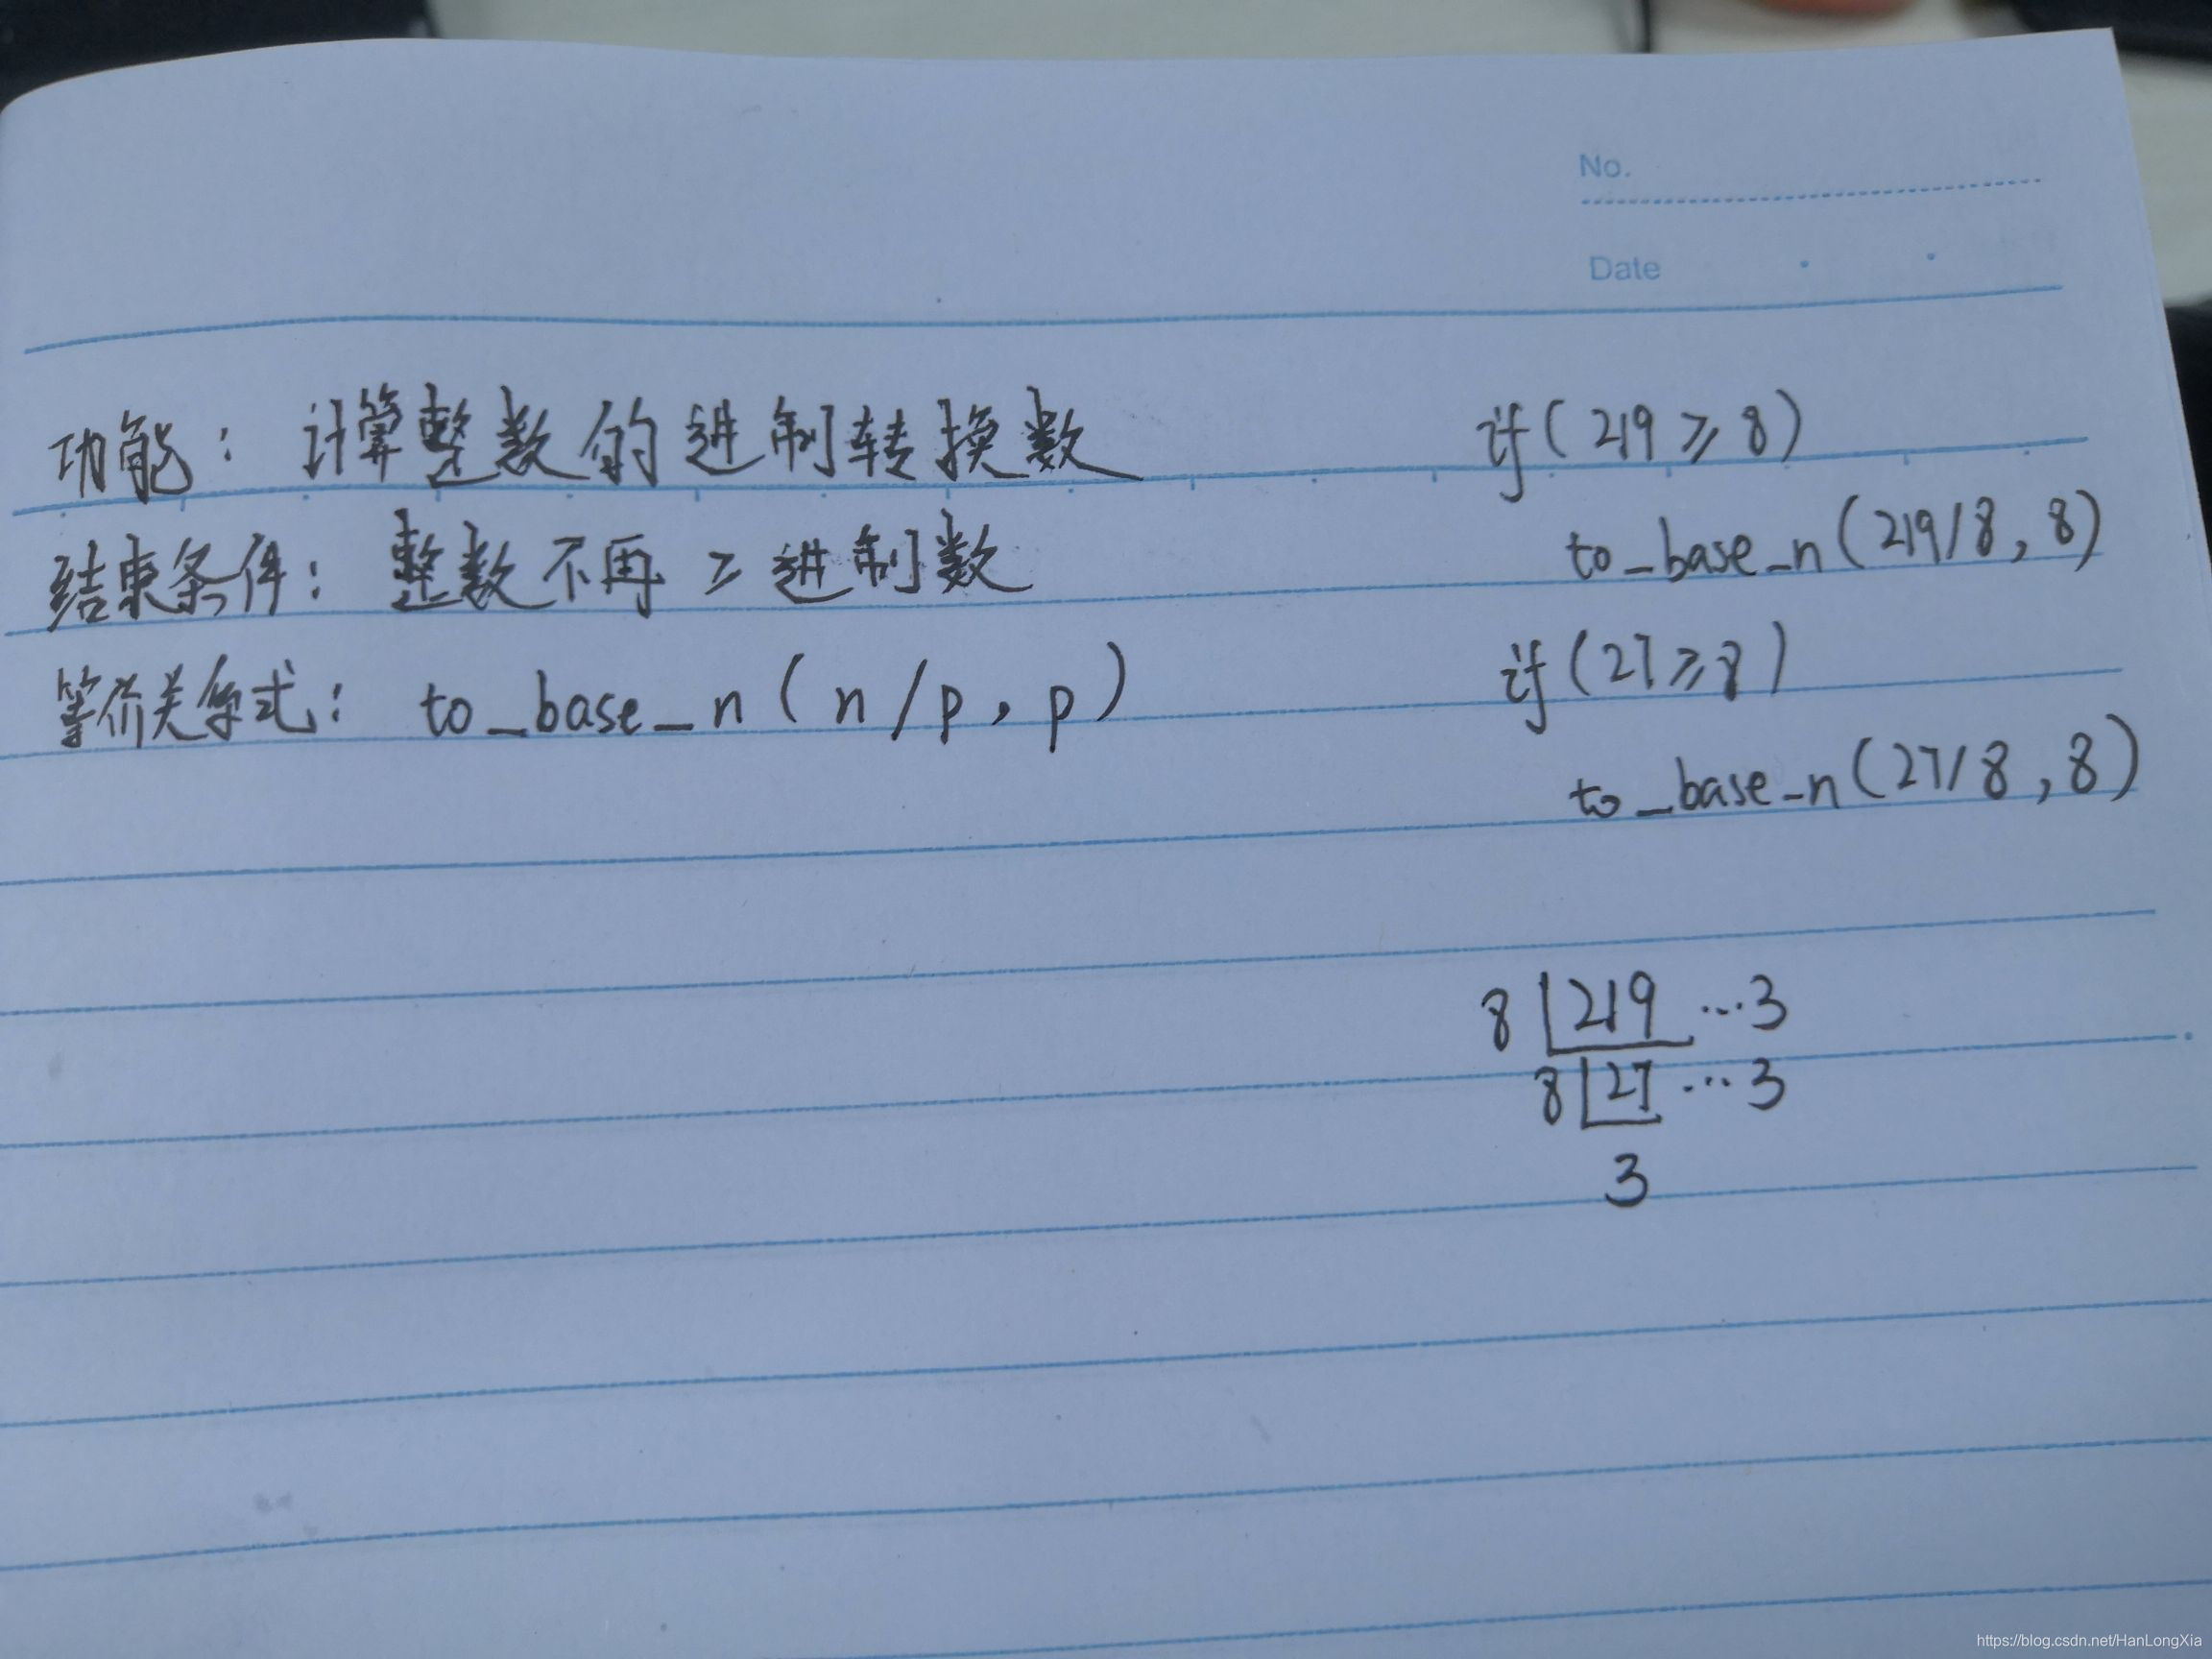 No.
Date
功能：计算整数的进制转换数
结束条件：整数不再≥进制数
等价关系式：to_base_n(n/p,p)
if(219≥8)
to_base_n(219/8,8)
if(27≥8)
to_base_n(27/8,8)
8 219 …3
8 27 …3
3
https://blog.csdn.net/HanLongXia